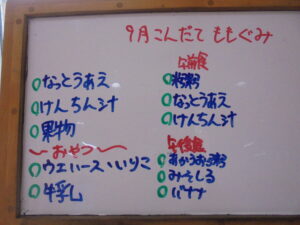 9月こんだて ももぐみ
なっとうあえ
けんちん汁
果物
おやつ
ウエハース・いりこ
牛乳
午前食
粥
なっとうあえ
けんちん汁
午後食
みそしる
バナナ